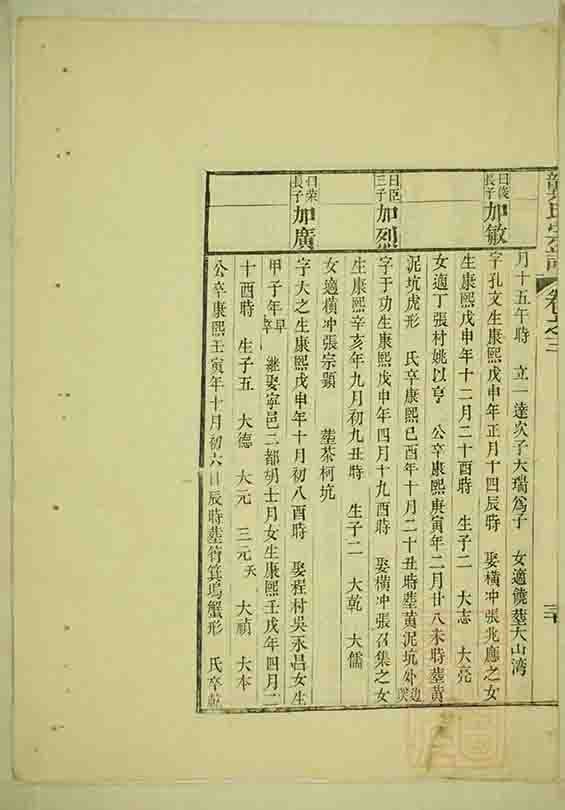 氏宗譜 卷之三 三十
月十五午時 立一達次子大瑞爲子 女適饒塟大山湾
曰俊長子 加敏
字孔文生康熙戊申年正月十四辰時 娶橫冲張兆應之女
生康熙戊申年十二月二十酉時 生子二 大志 大亮
女適丁張村姚以亨 公卒康熙庚寅年二月廿八未時塟黃
泥坑虎形 氏卒康熙己酉年十月二十丑時塟黃泥坑外邊
曰臣三子 加烈
字于功生康熙戊申年四月十九酉時 娶橫冲張召集之女
生康熙辛亥年九月初九丑時 生子二 大乾 大儒
女適橫冲張宗顯 塟茶柯坑
曰榮長子 加廣
字大之生康熙戊申年十月初八酉時 娶程村吳永昌女生
甲子年早卒 継娶寧邑二都胡士月女生康熙壬戌年四月二
十酉時 生子五 大德 大元 三元夭 大禎 大本
公卒康熙壬寅年十月初六日辰時塟筲箕塢蟹形 氏卒乾